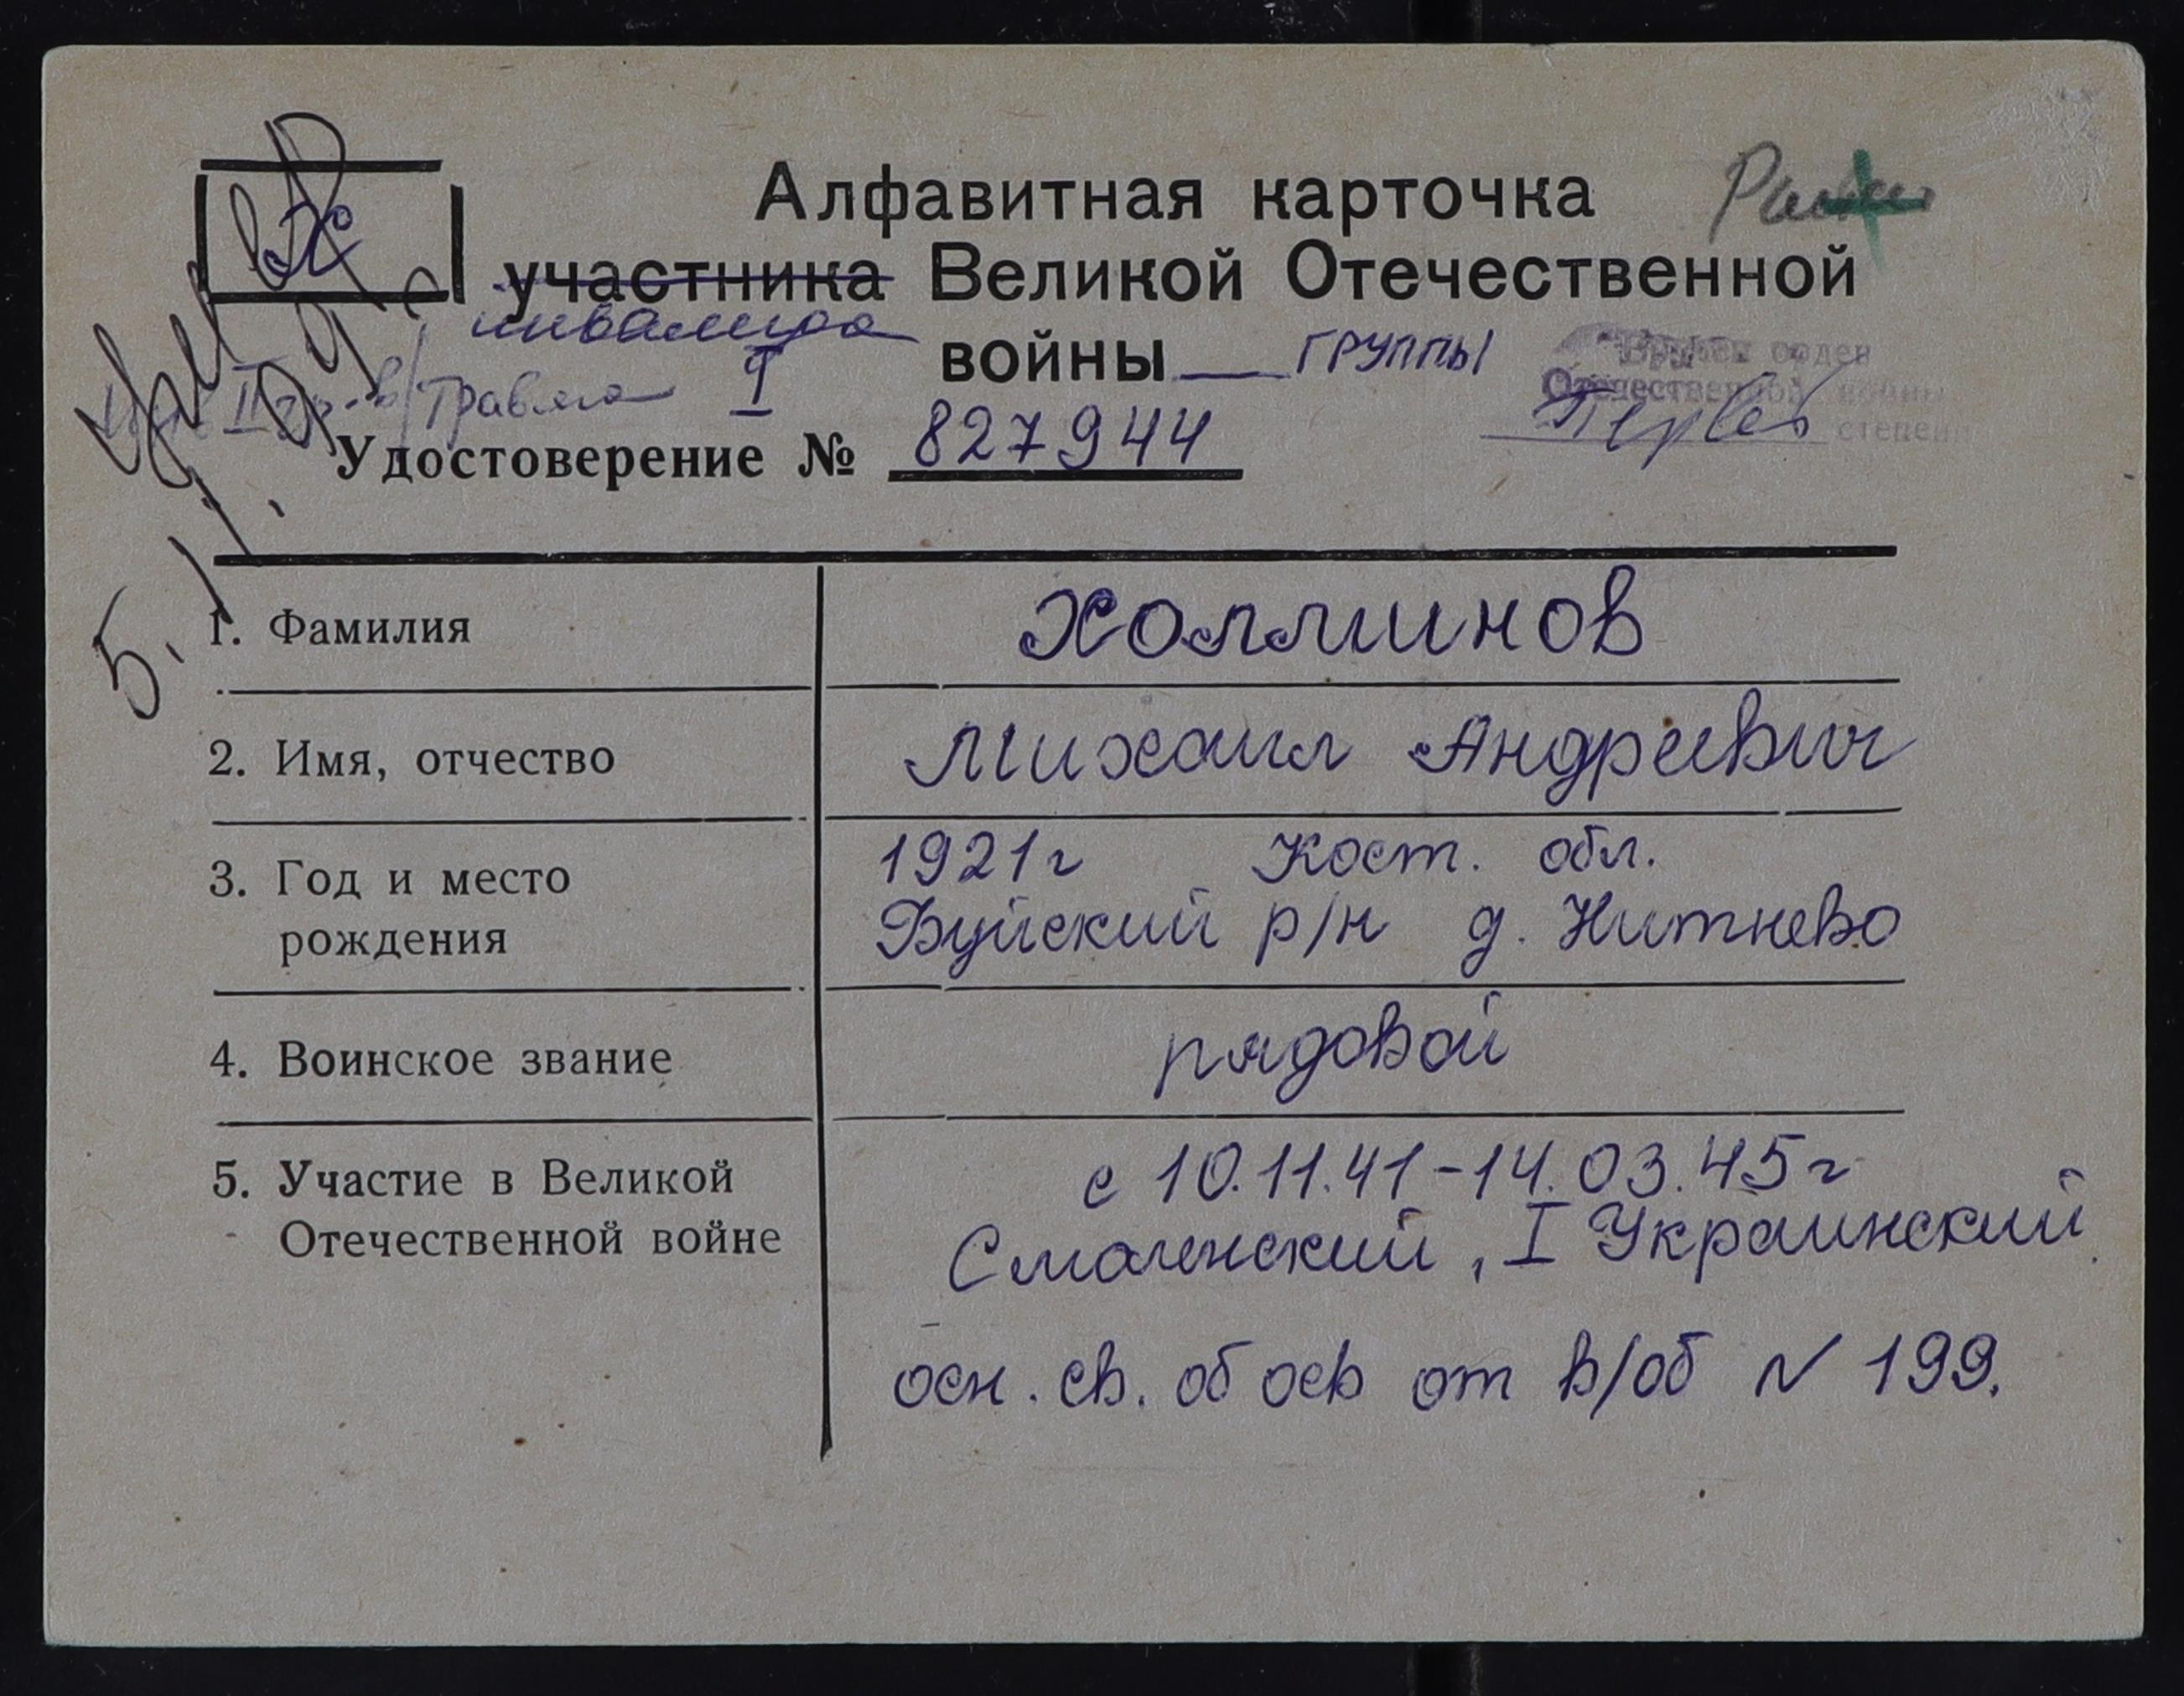 Х
Алфавитная карточка
участника Великой Отечественной
инвалида
войны группы
инв II гр. в/травма I
Вручен орден
Отечественной войны
Первой степени
Удостоверение № 827944
умер 5.11.94 г.
1. Фамилия Холминов
2. Имя, отчество Михаил Андреевич
3. Год и место 1921г Кост. обл.
рождения Буйский р/н д. Нитнево
4. Воинское звание рядовой
5. Участие в Великой с 10.11.41-14.03.45г
Отечественной войне Смоленский, I Украинский
осн. св. об осв от в/об N 199.